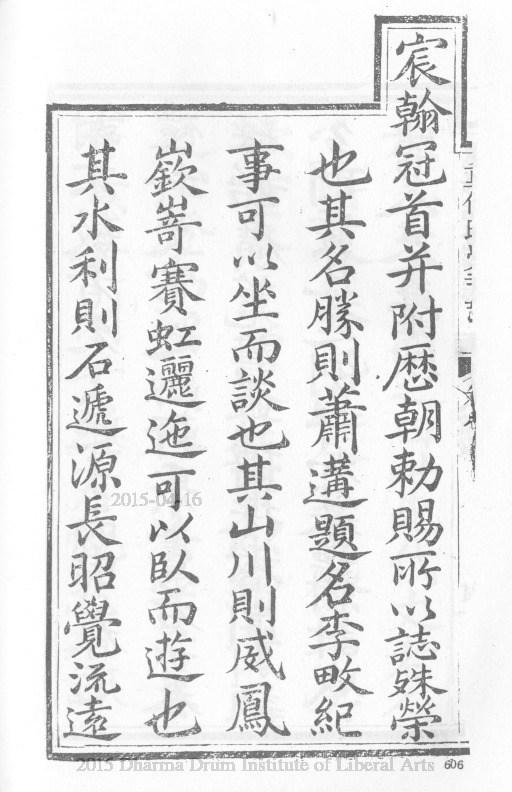 宸翰冠首并附歴朝勅賜所以誌殊榮
也其名勝則蕭遘題名李畋紀
事可以坐而談也其山川則威鳳
嶔嵜賽虹邐迤可以臥而遊也
其水利則石遞源長昭覺流遠
2015-04-16
2015 Dharma Drum Institute of Liberal Arts
606